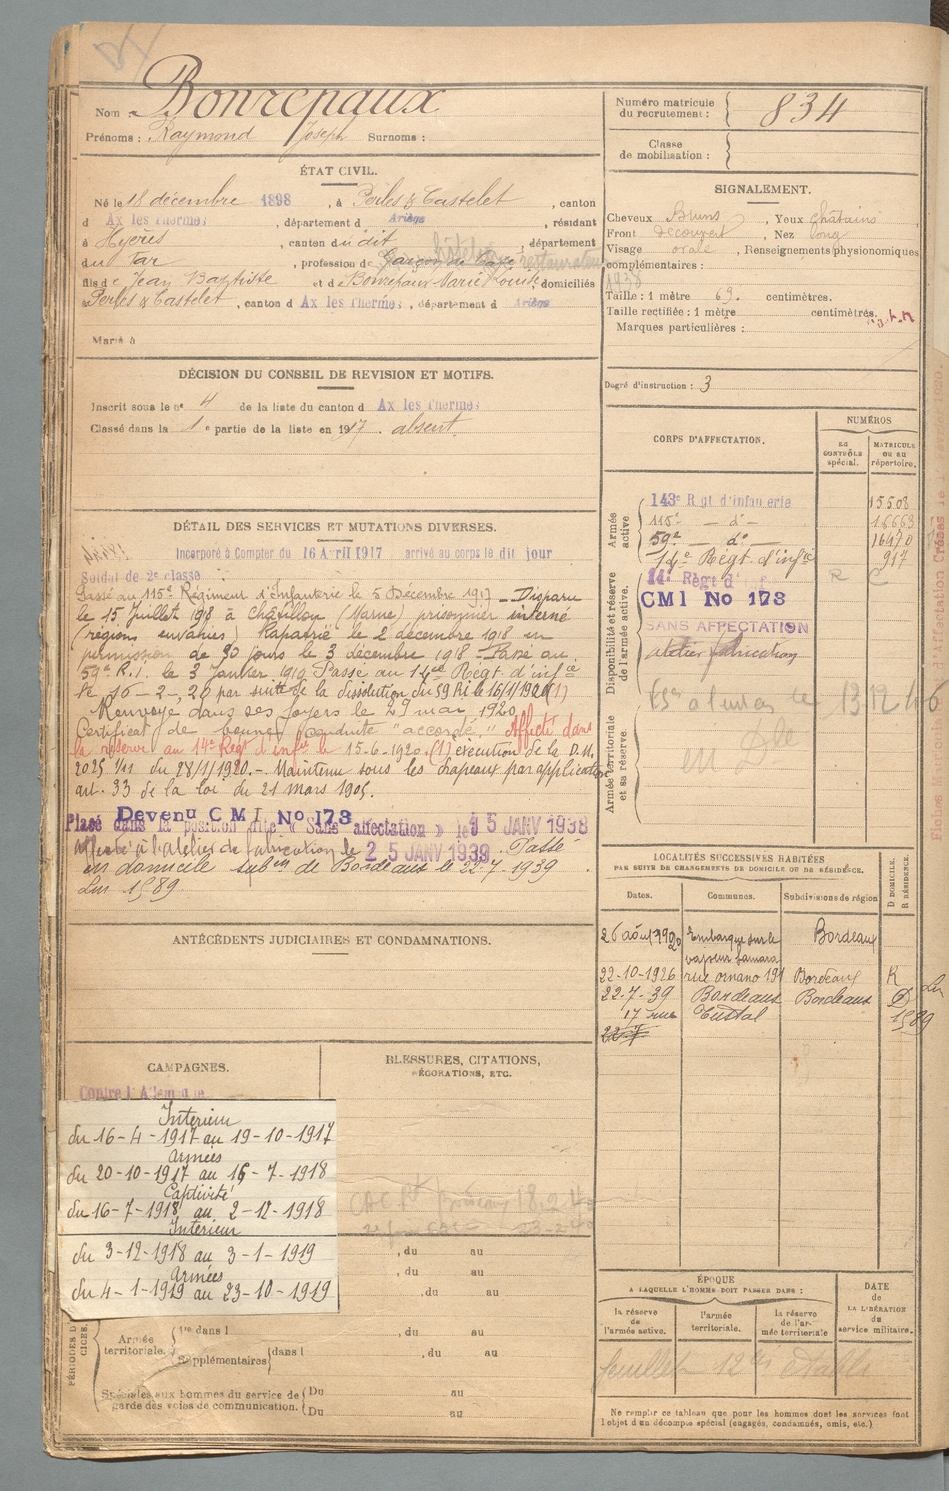 Nom : Bonrepaux
Prénoms : Raymond Joseph Surnoms :
ÉTAT CIVIL.
Né le 18 décembre 1898, à Perles & Castelet, canton
d Ax les Thermes, département d Ariège, résidant
à Hyères, canton du dit, département
du Var, profession de Garçon de Café restaurateur
fils de Jean Baptiste et d Bonrepaux Marie Louise, domiciliés
à Perles & Castelet, canton d Ax les Thermes, département d Ariège
Marié à
DÉCISION DU CONSEIL DE REVISION ET MOTIFS.
Inscrit sous le nº 4 de la liste du canton d Ax les Thermes
Classé dans la 1e partie de la liste en 1917. absent.
DÉTAIL DES SERVICES ET MUTATIONS DIVERSES.
Incorporé à Compter du 16 Avril 1917 arrivé au corps le dit jour
Soldat de 2e classe
Passé au 115e Régiment d'Infanterie le 5 Décembre 1917 - Disparu
le 15 Juillet 1918 à Châtillon (Marne) prisonnier interné
(régions envahies) Rapatrié le 2 décembre 1918 en
permission de 30 jours le 3 décembre 1918 - Passé au
59e R.I. le 3 Janvier 1919 Passé au 14e Régt d'infie
le 16-2-20 par suite de la dissolution du 59 RI le 16/1/1920 (1)
Renvoyé dans ses foyers le 29 mai 1920
Certificat de bonne conduite "accordé." Affecté dans
la réserve au 14e Régt d'infie le 15-6-1920. (1) exécution de la D.M.
2025 1/11 du 28/1/1920. - Maintenu sous les drapeaux par application
art. 33 de la loi du 21 mars 1905.
Devenu CMI No 173
Placé dans la position dite « Sans affectation » le 15 JANV 1938
Affecté à l'atelier de fabrication le 25 JANV 1939. Passé
en domicile subon de Bordeaux le 22-7-1939
1589
ANTÉCÉDENTS JUDICIAIRES ET CONDAMNATIONS.
CAMPAGNES.
Contre l'Allemagne
Intérieur
du 16-4-1917 au 19-10-1917
Armées
du 20-10-1917 au 15-7-1918
Captivité
du 16-7-1918 au 2-12-1918
Intérieur
du 3-12-1918 au 3-1-1919
Armées
du 4-1-1919 au 23-10-1919
BLESSURES, CITATIONS,
DÉCORATIONS, ETC.
18-2-40
23-2-40
, du au
, du au
, du au
Armée
territoriale.
1re dans l , du au
Supplémentaires dans l , du au
Spéciales aux hommes du service de
garde des voies de communication.
Du au
Du au
Numéro matricule
du recrutement : 834
Classe
de mobilisation :
SIGNALEMENT.
Cheveux Bruns, Yeux châtains
Front découvert, Nez long
Visage ovale, Renseignements physionomiques
complémentaires :
1938
Taille : 1 mètre 69. centimètres.
Taille rectifiée : 1 mètre centimètres.
Marques particulières :
Degré d'instruction : 3
CORPS D'AFFECTATION.
NUMÉROS
au
CONTRÔLE
spécial.
MATRICULE
ou au
répertoire.
Armée
active.
143e Rgt d'infanterie 15508
115e - do - 16663
59e - do - 16470
14e Régt d'infie 917
Disponibilité et réserve
de l'armée active.
14e Régt d'inf. R C
CMI No 173
SANS AFFECTATION
atelier fabrication
13 12 46
Armée territoriale
et sa réserve.
LOCALITÉS SUCCESSIVES HABITÉES
PAR SUITE DE CHANGEMENTS DE DOMICILE OU DE RÉSIDENCE.
Dates. Communes. Subdivisions de région
D DOMICILE.
R RÉSIDENCE.
26 août 1920 Embarqué sur le Bordeaux
vapeur Samara
22-10-1926 rue ornano 191 Bordeaux R
22-7-39 Bordeaux Bordeaux D
17 rue 1589
ÉPOQUE
A LAQUELLE L'HOMME DOIT PASSER DANS :
la réserve
de
l'armée active.
l'armée
territoriale.
la réserve
de l'ar-
mée territoriale
DATE
de
LA LIBÉRATION
du
service militaire.
feuillet établi
Ne remplir ce tableau que pour les hommes dont les services font
l'objet d'un décompte spécial (engagés, condamnés, omis, etc.)